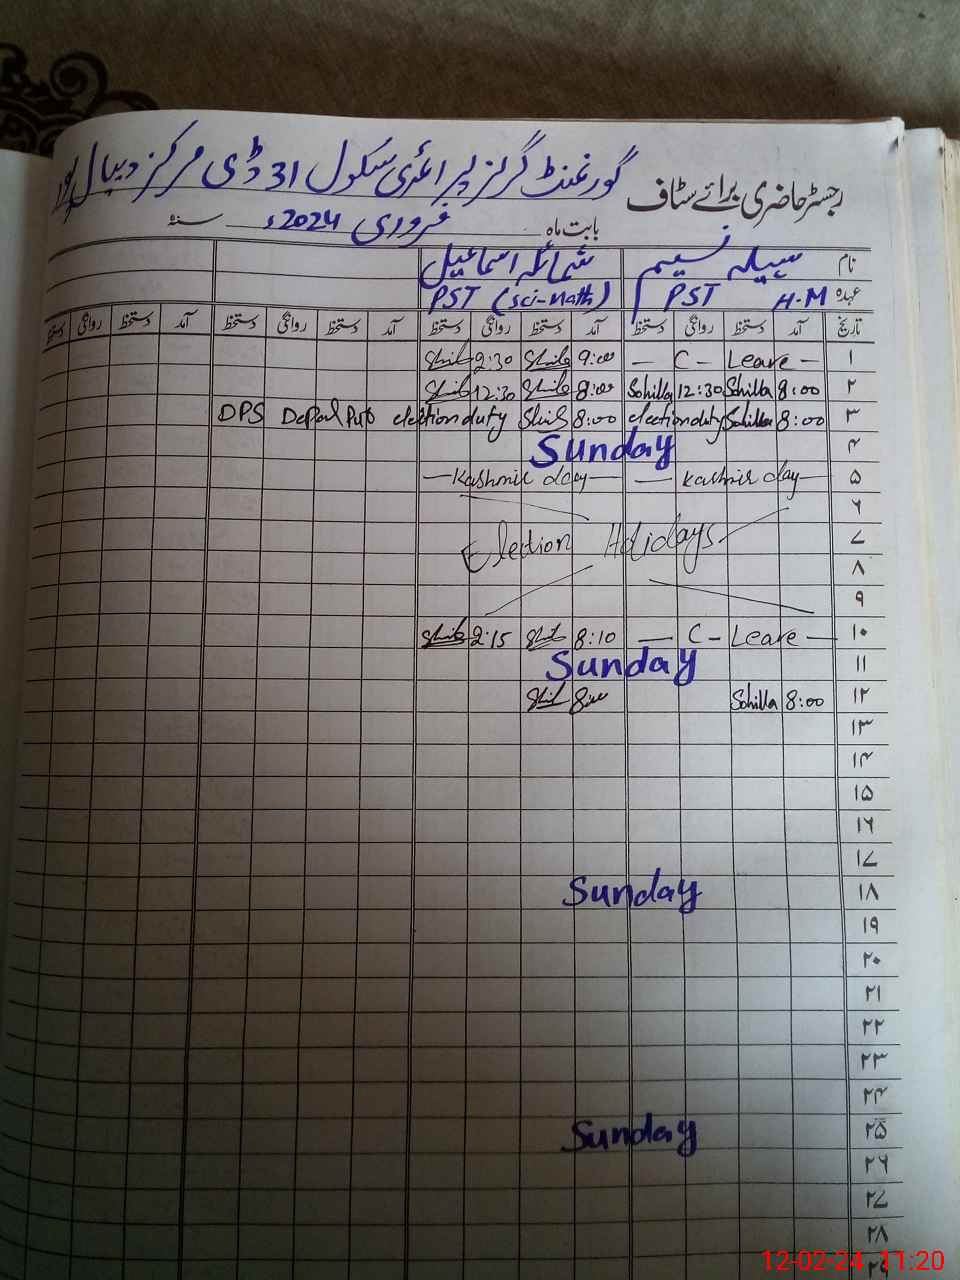 گورنمنٹ گرلز پرائمری سکول 31 ڈی مرکز دیپال پور
رجسٹر حاضری برائے سٹاف
بابت ماہ فروری 2024ء سنہ
نام سہیلہ نسیم شمائلہ اسماعیل
عہدہ PST H-M PST (Sci-Math)
تاریخ آمد دستخط روانگی دستخط آمد دستخط روانگی دستخط آمد دستخط روانگی دستخط آمد دستخط روانگی دستخط
۱ — C - Leave — 9:00 2:30
۲ 8:00 Sohilla 12:30 Sohilla 8:00 12:30
۳ 8:00 Sohilla election duty 8:00 election duty DPS
۴ Sunday
۵ — Kashmir day — — Kashmir day —
۶
۷ Election Holidays
۸
۹
۱۰ — C - Leave — 8:10 2:15
۱۱ Sunday
۱۲ 8:00 Sohilla 8:00
۱۳
۱۴
۱۵
۱۶
۱۷
۱۸ Sunday
۱۹
۲۰
۲۱
۲۲
۲۳
۲۴
۲۵ Sunday
۲۶
۲۷
۲۸
۲۹
12-02-24 11:20